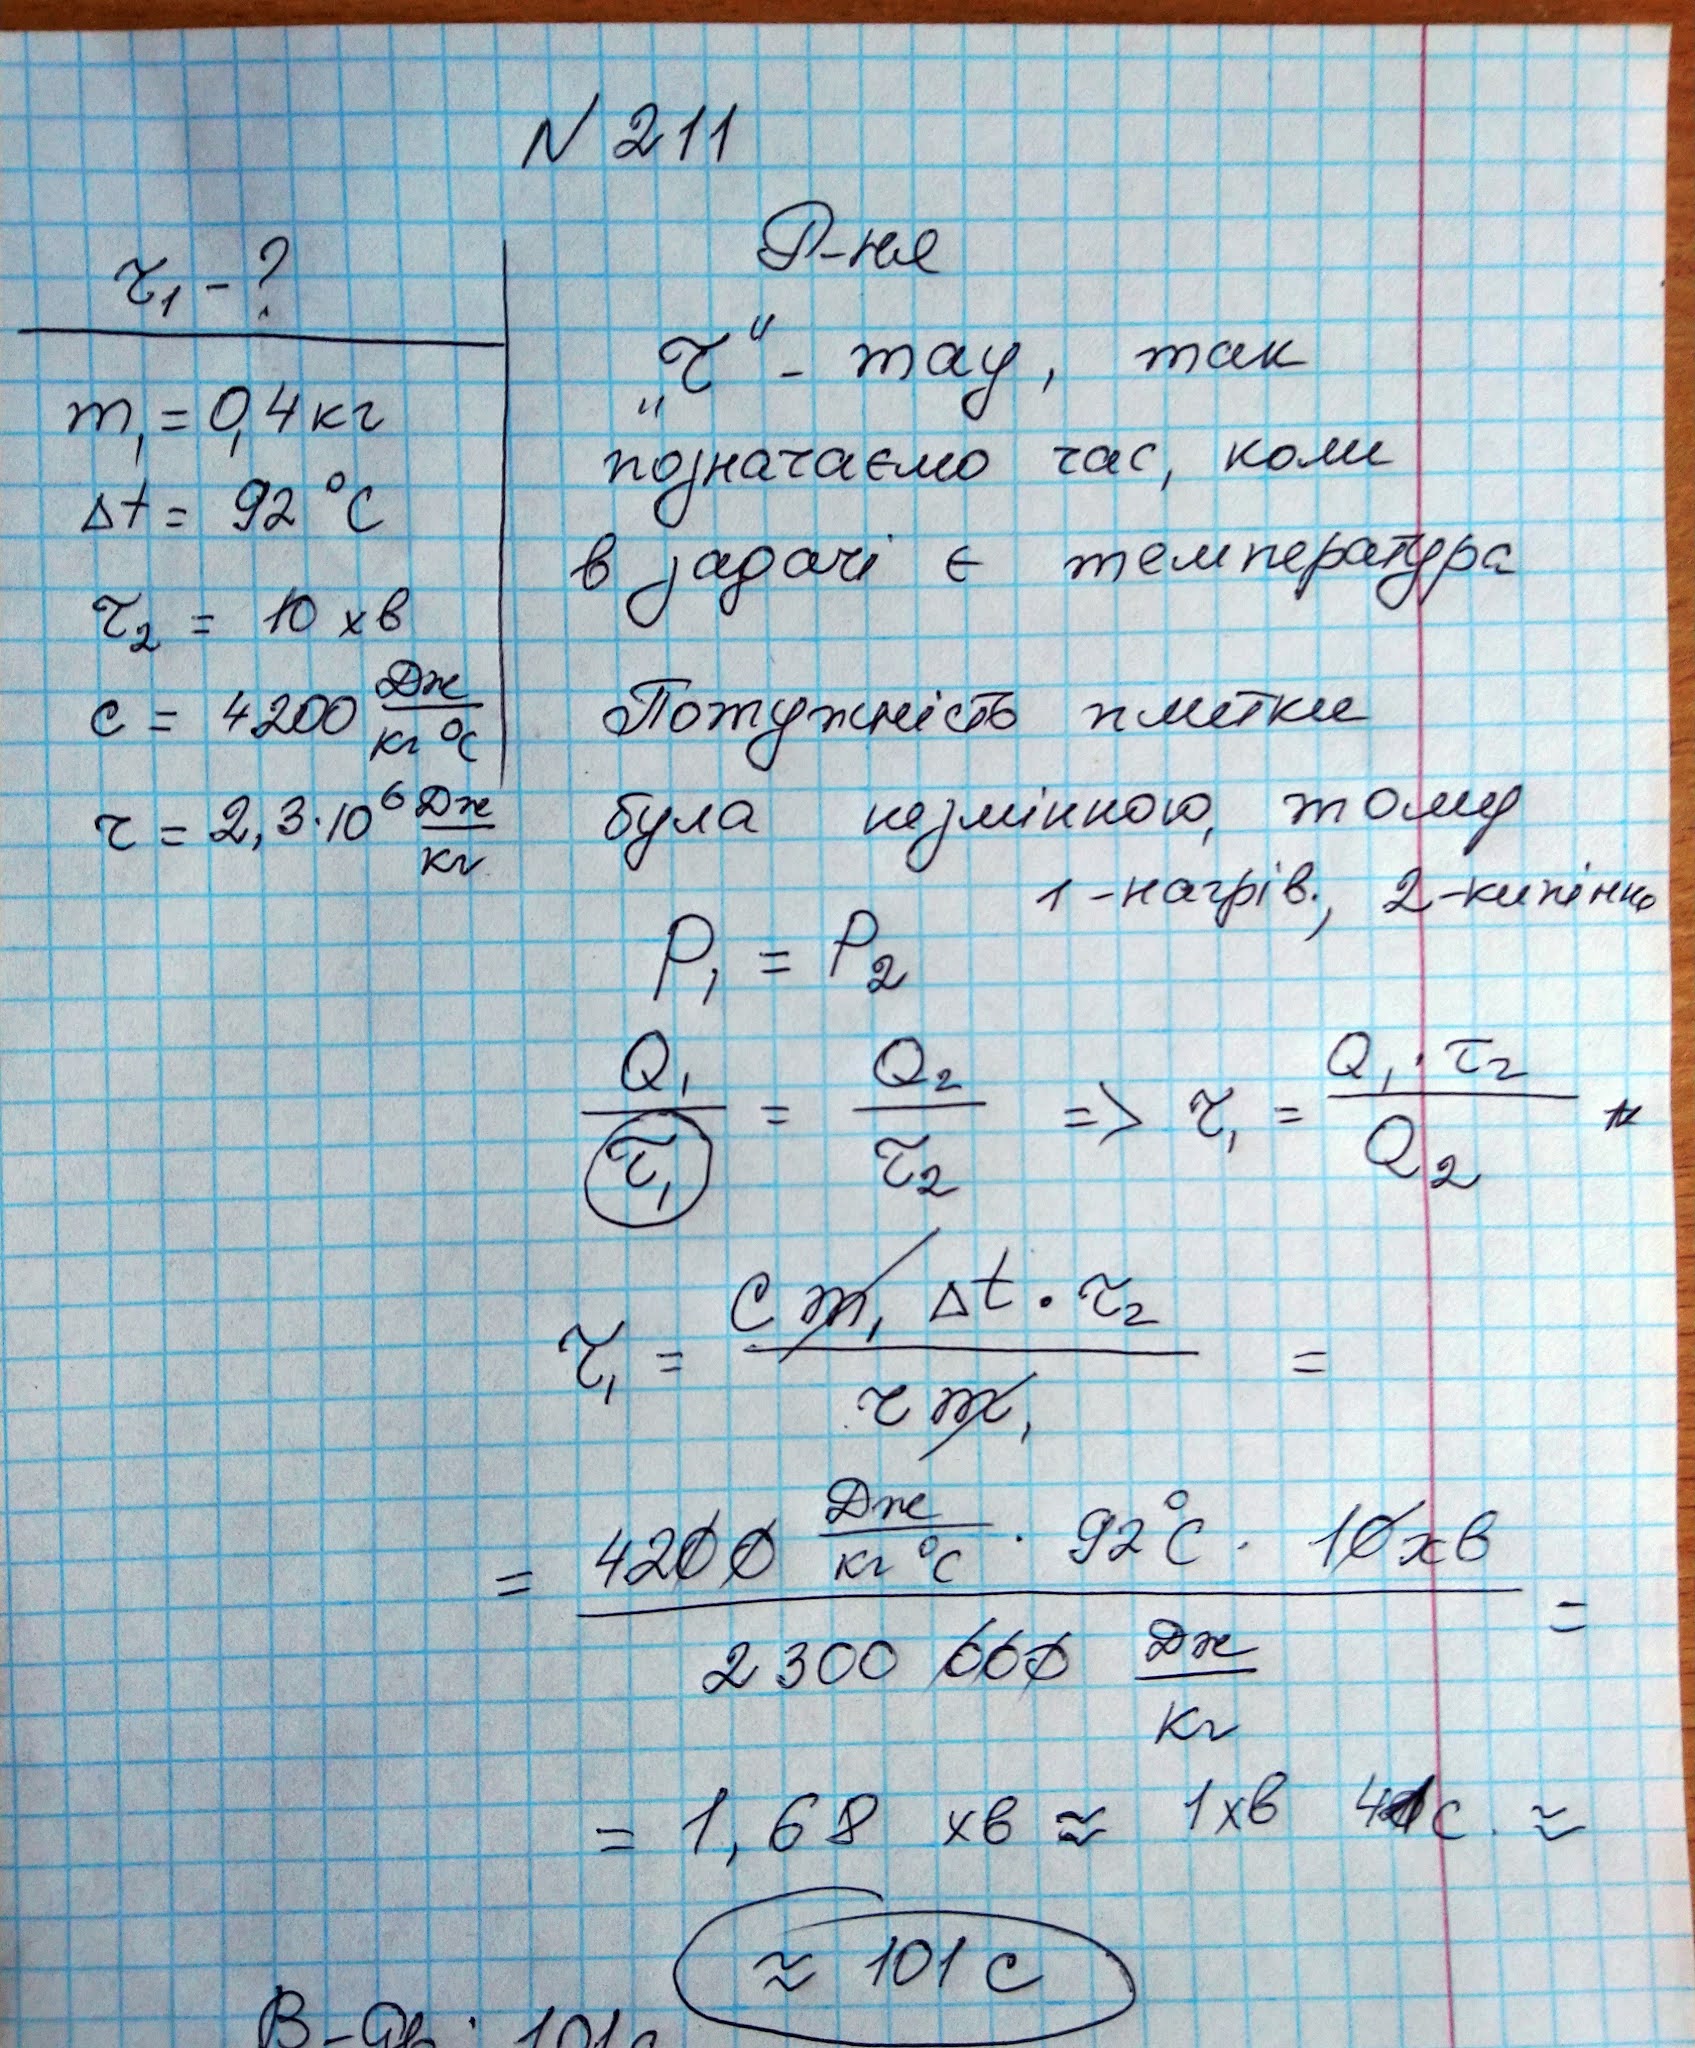 N 211
τ₁ - ?
m₁ = 0,4 кг
Δt = 92 °C
τ₂ = 10 хв
c = 4200 Дж/кг°C
r = 2,3·10⁶ Дж/кг
Р-ня
„τ“ - тау, так
позначаємо час, коли
в задачі є температура
Потужність плитки
була незмінною, тому
1 - нагрів., 2 - кипіння
P₁ = P₂
Q₁/τ₁ = Q₂/τ₂ => τ₁ = Q₁·τ₂/Q₂
τ₁ = c m₁ Δt · τ₂ / r m₁ =
= 4200 Дж/кг°C · 92°C · 10хв / 2300 000 Дж/кг =
= 1,68 хв ≈ 1хв 41с. ≈
≈ 101 с
В-дь: 101с